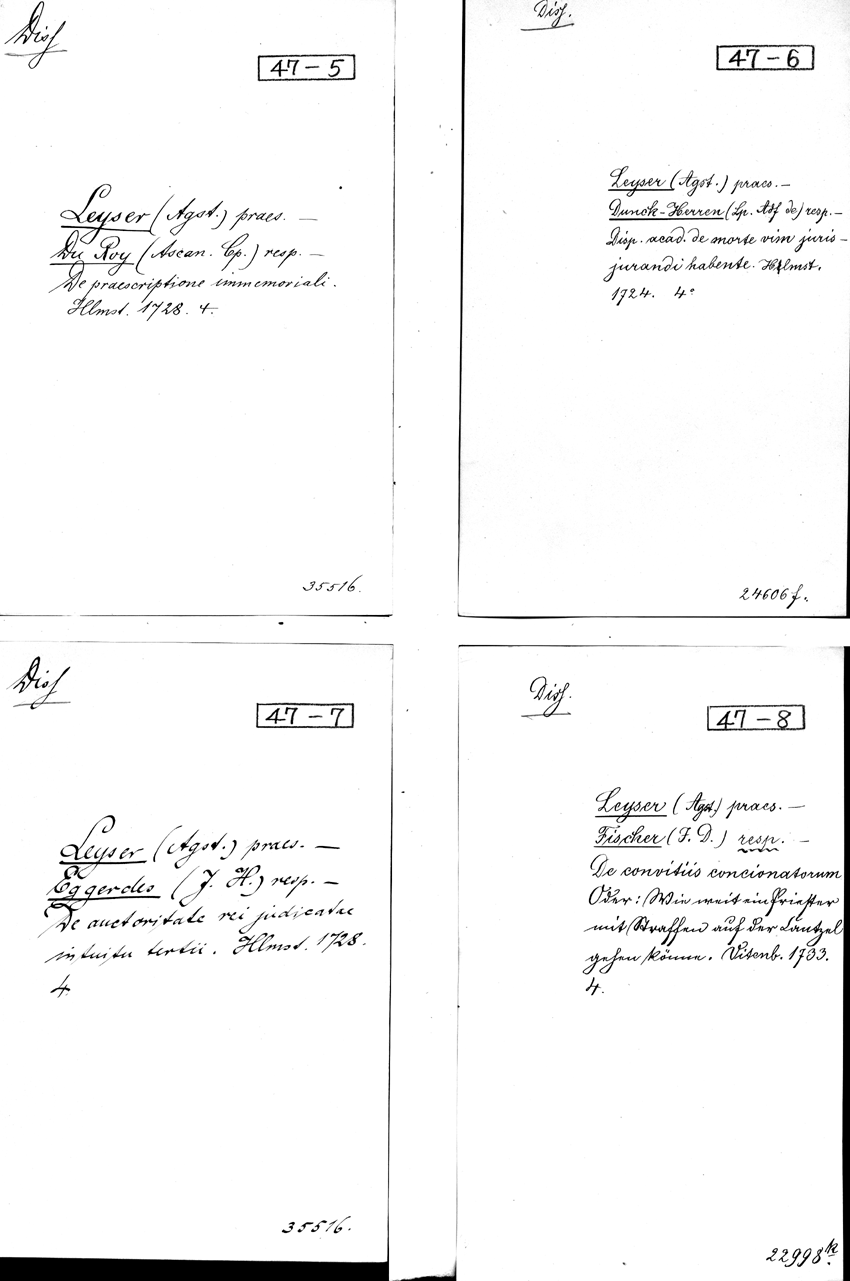 Diss
47-5
Leyser (Agst.) praes. —
Du Roy (Ascan. Cp.) resp. —
De praescriptione immemoriali.
Hlmst. 1728. 4.
35516.
Diss.
47-6
Leyser (Agst.) praes. —
Dunck-Herren (Lp. Adf de) resp. —
Disp. acad. de morte vim juris-
jurandi habente. Hlmst.
1724. 4°
24606f.
Diss
47-7
Leyser (Agst.) praes. —
Eggerdes (J. H.) resp. —
De auctoritate rei judicatae
intuitu tertii. Hlmst. 1728.
4.
35516.
Diss.
47-8
Leyser (Agst.) praes. —
Fischer (F. D.) resp. —
De convitiis concionatorum
Oder: Wie weit ein Priester
mit Straffen auf der Cantzel
gehen könne. Vitenb. 1733.
4.
22998k.